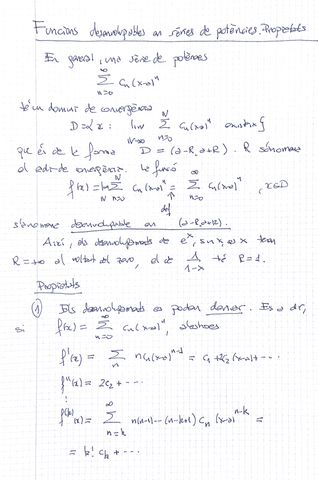 Funcions desenvolupables en sèries de potències. Propietats
En general, una sèrie de potències
∞
∑ cₙ(x-a)ⁿ
n=0
té un domini de convergència
D = { x : lim_{N→∞} ∑_{n=0}^{N} cₙ(x-a)ⁿ existeix }
que és de la forma D = (a-R, a+R). R s'anomena
el radi de convergència. La funció
f(x) = lim_{N} ∑_{n=0}^{N} cₙ(x-a)ⁿ = ∑_{n=0}^{∞} cₙ(x-a)ⁿ, x∈D
def
s'anomena desenvolupable en (a-R, a+R).
Així, els desenvolupaments de eˣ, sin x, cos x tenen
R = +∞ al voltant del zero, el de 1/(1-x) té R = 1.
Propietats
① Els desenvolupaments es poden derivar. És a dir,
si f(x) = ∑_{n=0}^{∞} cₙ(x-a)ⁿ, aleshores
f'(x) = ∑_{n} n cₙ(x-a)ⁿ⁻¹ = c₁ + 2c₂(x-a) + ...
f''(x) = 2c₂ + ...
⋮
f⁽ᵏ⁾(x) = ∑_{n=k}^{∞} n(n-1)...(n-k+1) cₙ (x-a)ⁿ⁻ᵏ =
= k! cₖ + ...